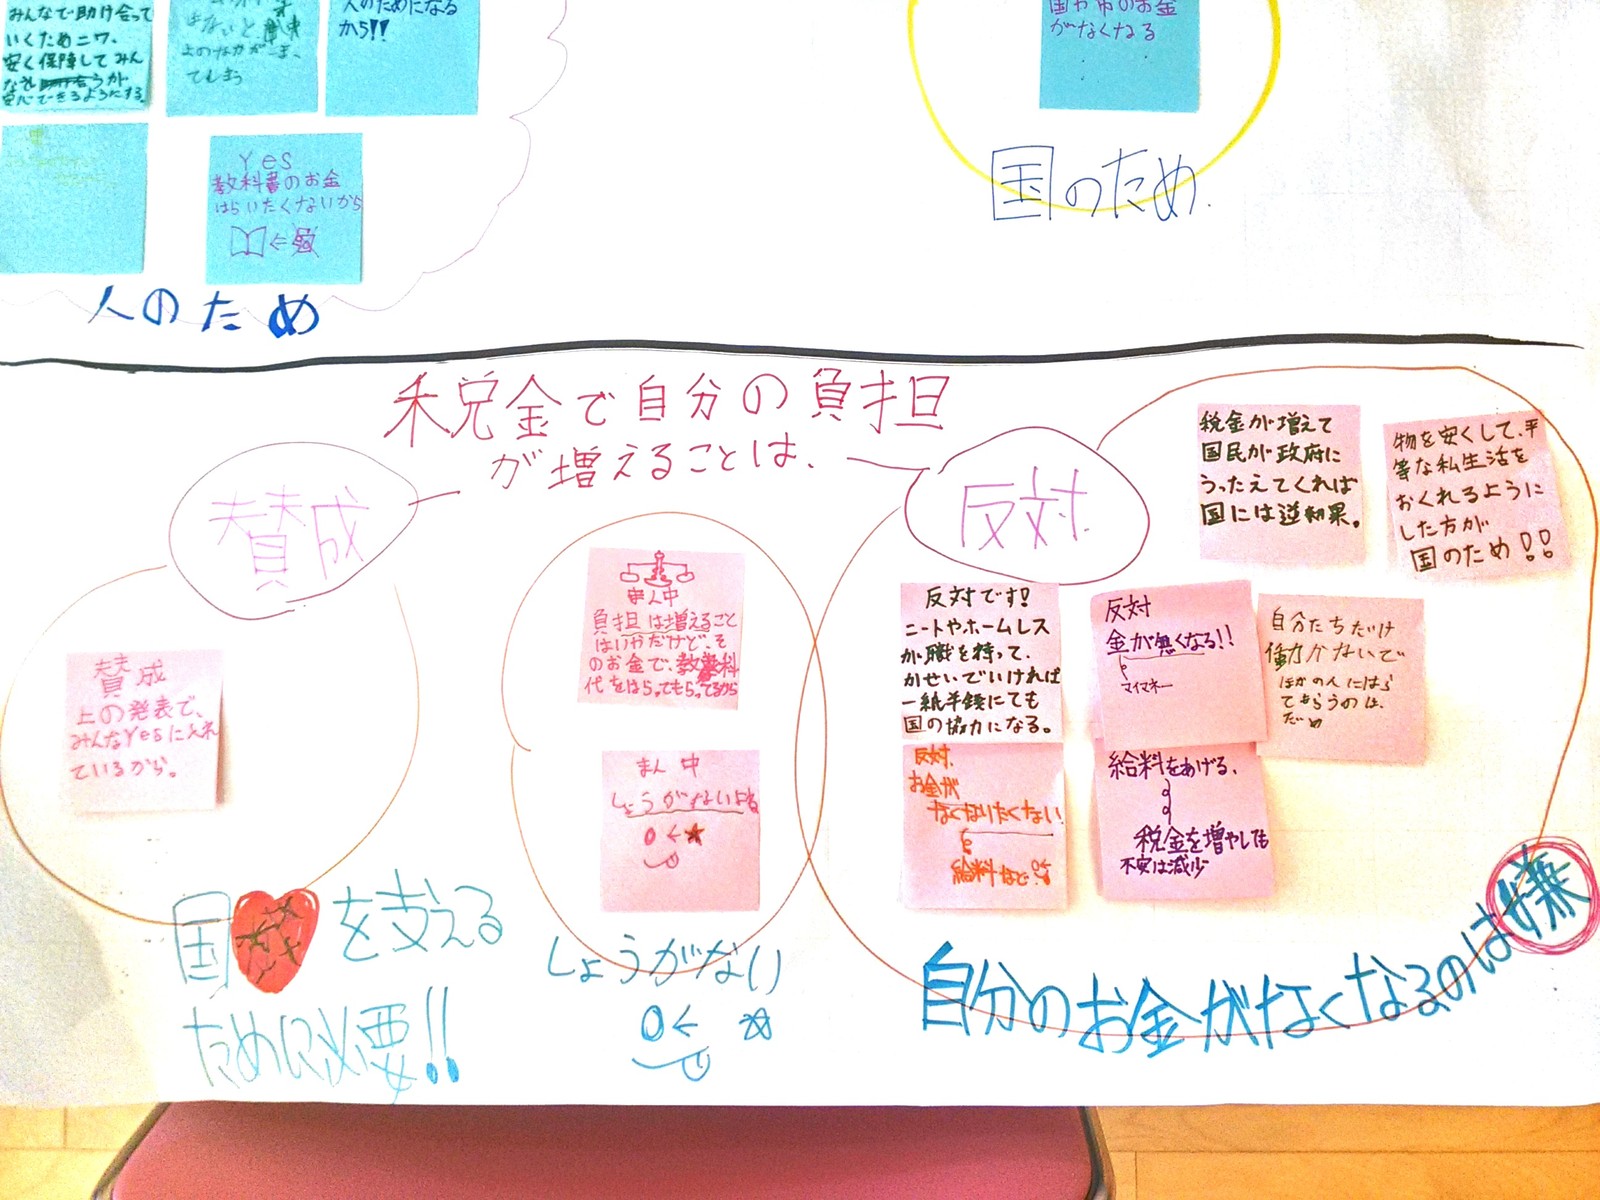 みんなで助け合って
いくため
安く保障してみん
な
安心できるようにする。
しないと
上のなかが
てしまう
人のためになる
から!!
Yes
教科書のお金
はらいたくないから
人のため
国や市のお金
がなくなる
国のため.
税金で自分の負担
が増えることは、
賛成
反対
賛成
上の発表で、
みんなYesに入れ
ているから。
国を支える
ために必要!!
まん中
負担は増えること
はいやだけど、そ
のお金で、教科
代をはらってもらってるから
まん中
しょうがないよね
しょうがない
税金が増えて
国民が政府に
うったえてくれば
国には逆効果。
物を安くして、平
等な私生活を
おくれるように
した方が
国のため!!
反対です!
ニートやホームレス
が職を持って、
かせいでいければ
一紙半銭にても
国の協力になる。
反対
金が無くなる!!
マイマネー
自分たちだけ
働かないで
ほかの人にはら
てもらうのは、
だめ
反対.
お金が
なくなりたくない!
給料など
給料をあげる、
税金を増やしても
不安は減少
自分のお金がなくなるのは嫌